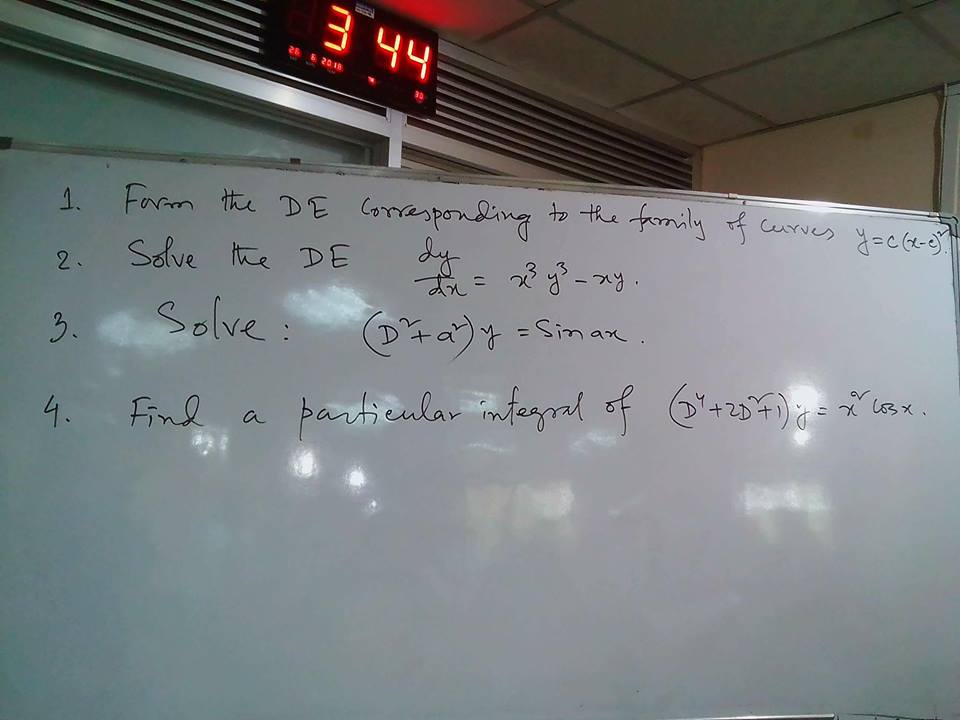 3 44
26 6 2018 30
1. Form the DE Corresponding to the family of curves y=c(x-c)².
2. Solve the DE dy/dx = x³y³-xy.
3. Solve: (D²+a²)y = Sin ax.
4. Find a particular integral of (D⁴+2D²+1)y = x² Cos x.